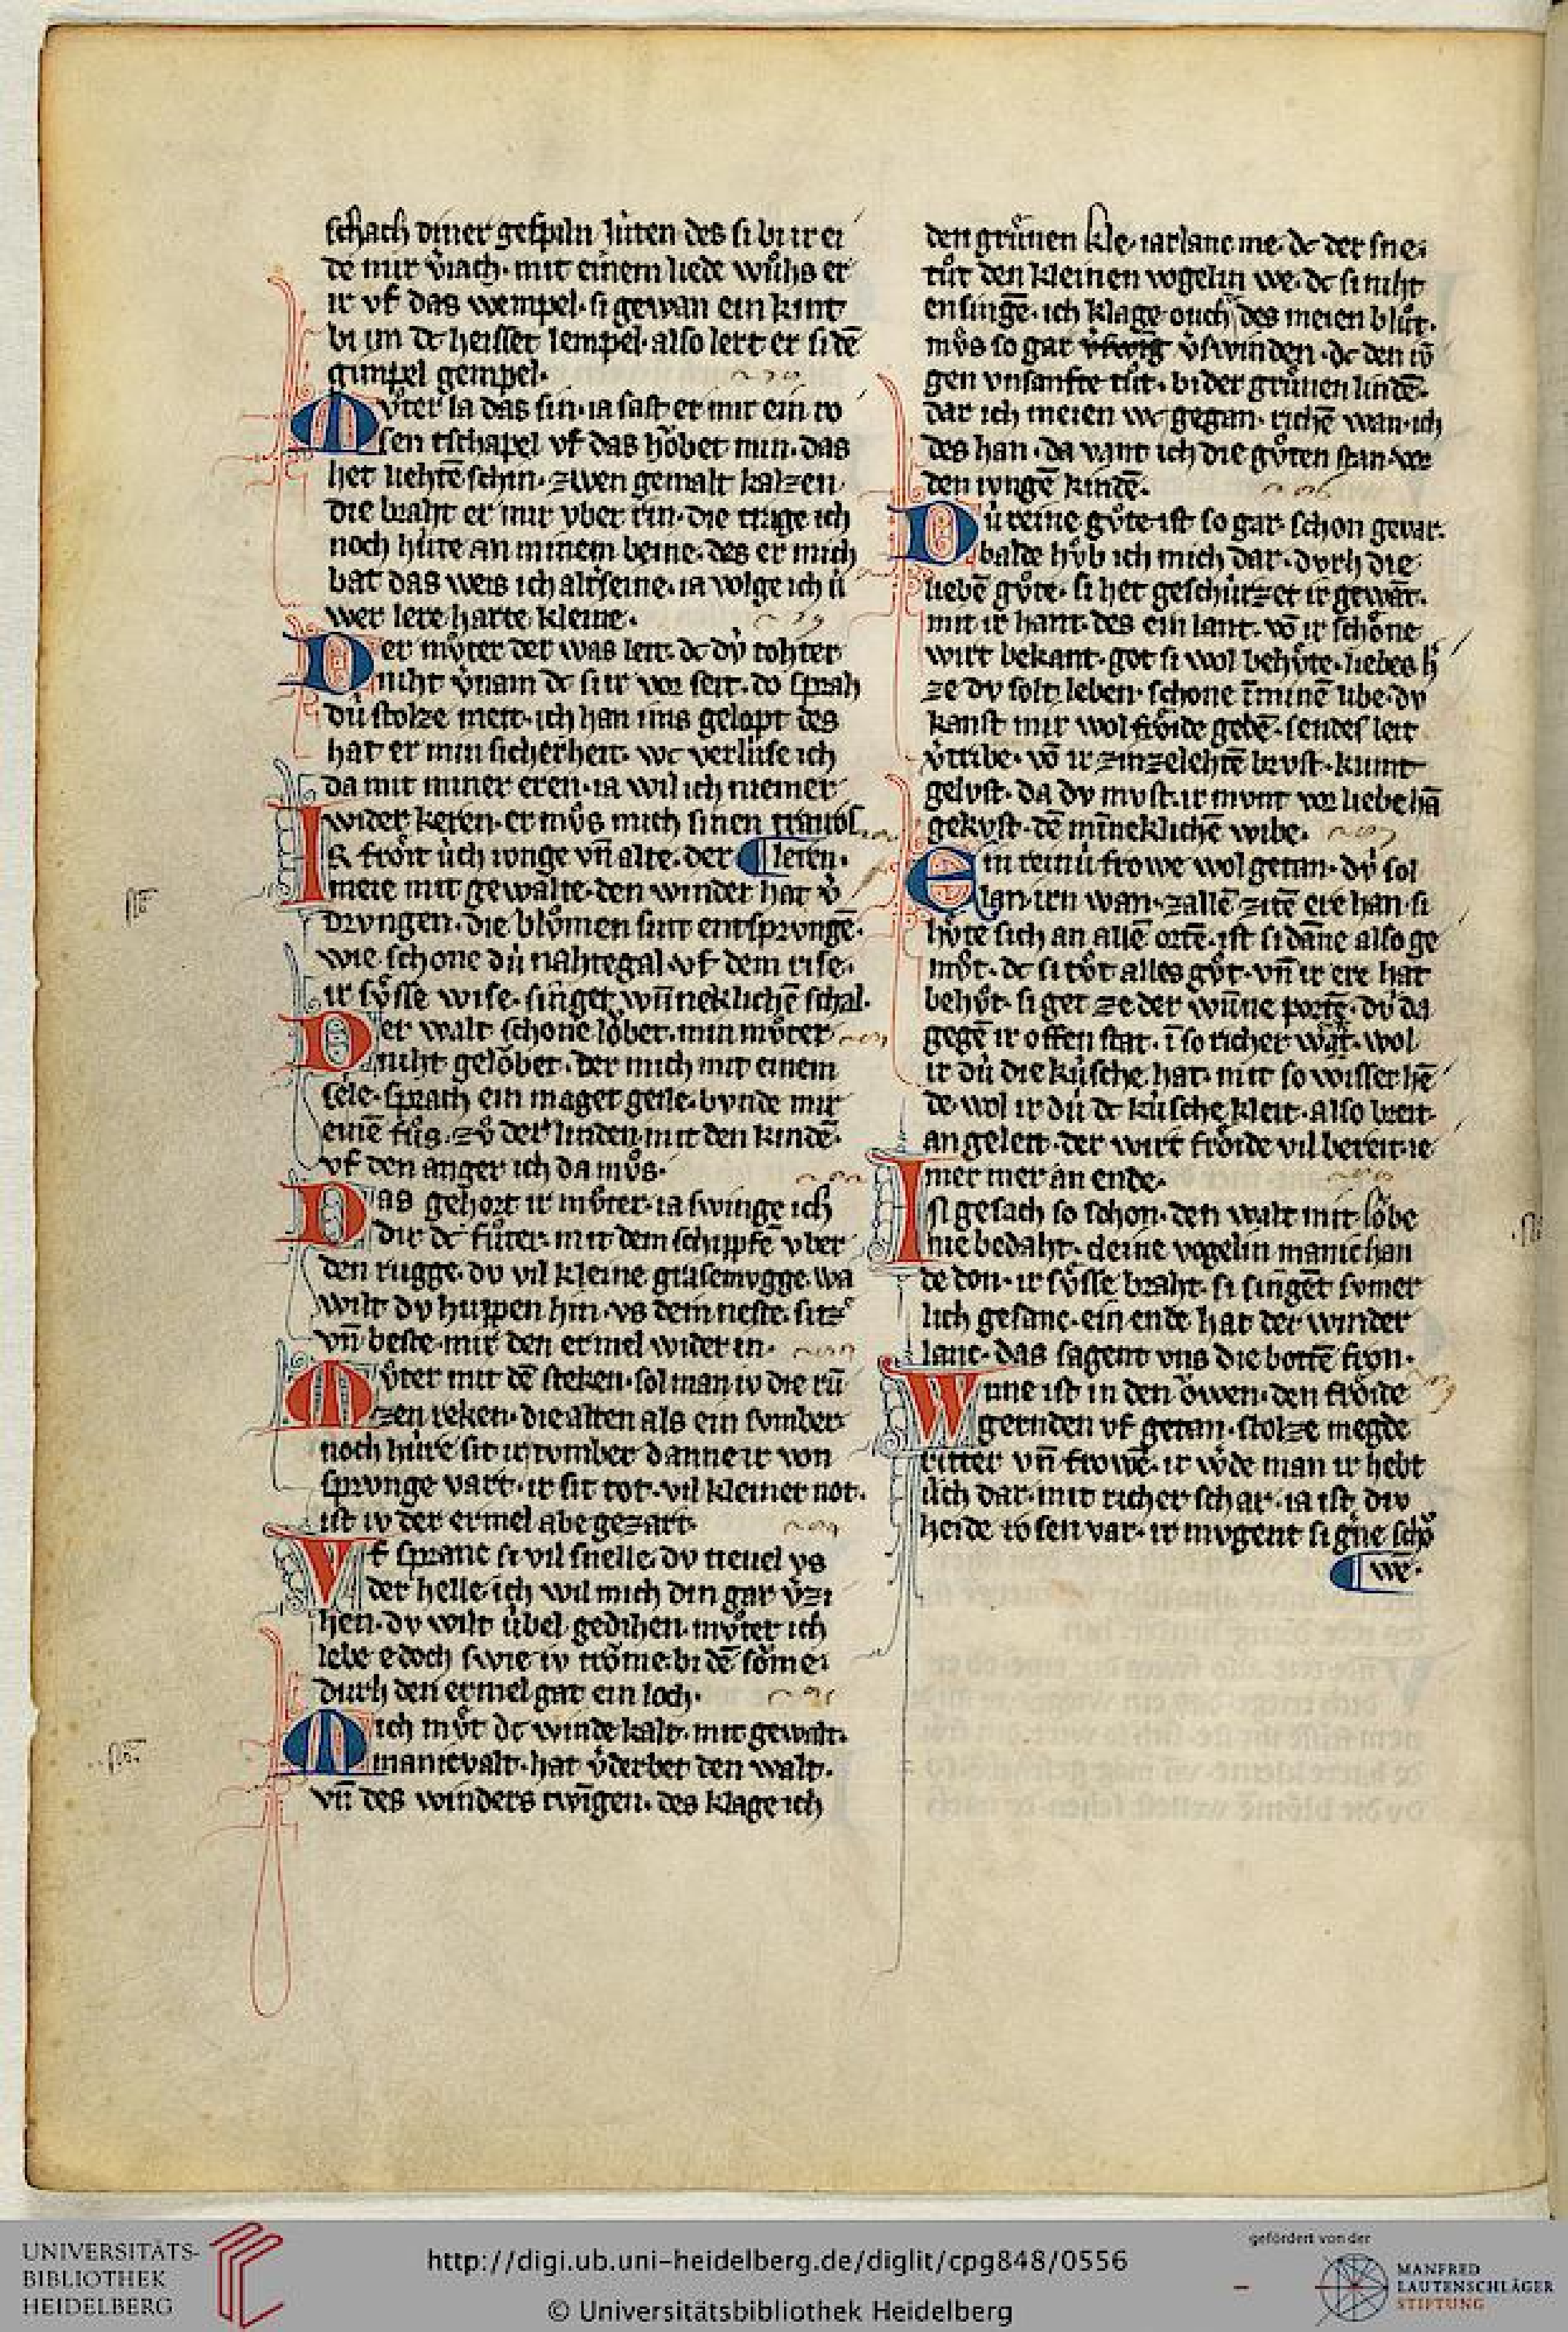 schach diner gespiln Júten des si bi ir ei
de mir v͛iach· mit einem liede wůhs er
ir vf das wempel· si gewan ein kint
bi im dc heisset lempel· also lert er si dē
gimpel gempel·
Mv̊ter la das sin· ia sast er mir ein ro
sen tschapel vf das hôbet min· das
het liehtē schin· zwen gemalt kalzen
die braht er mir vber rin· die trage ich
noch húte an minem beine· des er mich
bat das weis ich altseine· ia volge ich ú
wer lere harte kleine·
Der mv̊ter der was leit· dc dv́ tohter
niht v͛nam dc si ir vor seit· do sprah
dú stolze meit· ich han ims gelopt des
hat er min sicherheit· wc verlúse ich
da mit miner eren· ia wil ich niemer
wider keren· er mv̊s mich sinen
Is frôit úch ivnge vn̄ alte· der ¶ leren·
meie mit gewalte· den winder hat v͛
drvngen· die blv̊men sint entsprvngē·
wie schone dú nahtegal· vf dem rise·
ir sv̊sse wise· singet wn̄neklichē schal·
Der walt schone lôbet· min mv̊ter
niht gelôbet· der mich mit einem
seile· sprach ein maget geile· bvnde mir
einē fůs· zv̊ der linden mit den kindē·
vf den anger ich da mv̊s·
Das gehort ir mv̊ter· ia swinge ich
dir dc fůter· mit dem schipfē vber
den rugge· dv vil kleine grasemvgge· wa
wilt dv huppen hin· vs dein neste· sitz
vn̄ beste· mir den ermel wider in·
Mv̊ter mit dē steken· sol man iv die rú
zen reken· die alten als ein svmber·
noch húre sit ir tvmber danne ir von
sprvnge vart· ir sit tot· vil kleiner not·
ist iv der ermel abe gezart·
Vf spranc si vil snelle· dv tieuel vs
der helle· ich wil mich din gar v͛zi
hen· dv wilt úbel gedihen· mv̊ter ich
lebe e doch· swie iv trôme· bi dē sôme·
durh den ermel gat ein loch·
Mich mv̊t dc winde kalt· mit gewalt·
manicvalt· hat v͛derbet den walt·
vn̄ des winders twīgen· des klage ich
den grůnen kle· iarlanc me· dc der sne·
tůt den kleinen vogelin we· dc si niht
en singē· ich klage ouch des meien blůt·
mv̊s so gar v͛swig v͛swinden· dc den iv̄
gen vnsanfte tůt· bi der grůnen lindē·
dar ich meien wc gegan· richē wan· ich
des han· da vant ich die gv̊ten stan· vor
den ivngē kindē·
Dú reine gv̊te ist so gar· schon gevar·
balde hv̊b ich mich dar· dvrh die
liebē gv̊te· si het geschúrzet ir gewāt·
mit ir hant· des ein lant· vō ir schône
wirt bekant· got si wol behv̊te· liebes h͛
ze dv solt leben· schone ī minē libe· dv
kanst mir wol frôide gebē· sendes leit
v͛tribe· vō ir zinzelehtē brvst· kumt
gelvst· da dv mvst· ir mvnt vor liebe hā
gekvst· dē mīneklichē wibe·
Ein reinú frowe wol getan· dv́ sol
lan· irn wan· zallē zitē ere han· si
hv̊te sich an allē ortē· ist si dāne also ge
mv̊t· dc si tv̊t alles gv̊t· vn̄ ir ere hat
behv̊t· si get ze der wn̄ne portē· dv́ da
gegē ir offen stat· ī so richer wat· wol
ir dú die kúsche hat· mit so wisser hē
de· wol ir dú dc kúsche kleit· also breit·
an geleit· der wirt frôide vil bereit· ie
mer mer an ende·
In gesach so schon· den walt mit lôbe
nie bedaht· cleine vogelin manic han
de don· ir sv̊sse braht· si singēt svmer
lich gesanc· ein ende hat der winder
lanc· das sagent vns die bottē fron·
Wnne ist in den ôwen· den frôide
gernden vf getan· stolze megde
ritter vn̄ frowē· ir v̊de man ir hebt
úch dar· mit richer schar· ia ist div
heide rosen var· ir mvgent si gn͛e schŏ
¶ wē·
UNIVERSITÄTS-
BIBLIOTHEK
HEIDELBERG
http://digi.ub.uni-heidelberg.de/diglit/cpg848/0556
© Universitätsbibliothek Heidelberg
gefördert von der
MANFRED
LAUTENSCHLÄGER
STIFTUNG